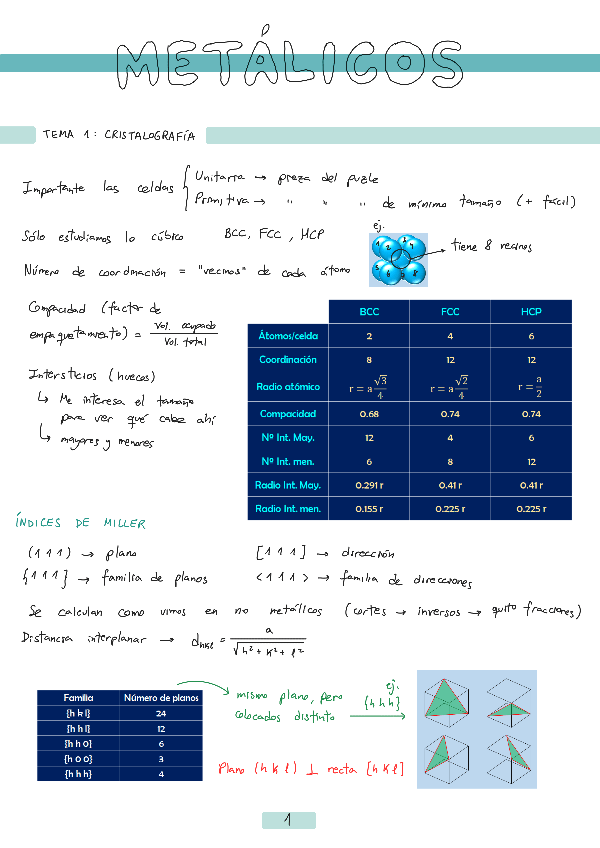 METÁLICOS
TEMA 1: CRISTALOGRAFÍA
Importante las celdas { Unitaria → pieza del puzle
Primitiva → " " " de mínimo tamaño (+ fácil)
Sólo estudiamos lo cúbico BCC, FCC, HCP
ej.
1 2 3 4 5 6 7 8
tiene 8 vecinos
Número de coordinación = "vecinos" de cada átomo
Compacidad (factor de
empaquetamiento) = Vol. ocupado / Vol. total
Intersticios (huecos)
↳ Me interesa el tamaño
para ver qué cabe ahí
↳ mayores y menores
BCC FCC HCP
Átomos/celda 2 4 6
Coordinación 8 12 12
Radio atómico r = a √3/4 r = a √2/4 r = a/2
Compacidad 0.68 0.74 0.74
Nº Int. May. 12 4 6
Nº Int. men. 6 8 12
Radio Int. May. 0.291 r 0.41 r 0.41 r
Radio Int. men. 0.155 r 0.225 r 0.225 r
ÍNDICES DE MILLER
(1 1 1) → plano [1 1 1] → dirección
{1 1 1} → familia de planos <1 1 1> → familia de direcciones
Se calculan como vimos en no metálicos (cortes → inversos → quito fracciones)
Distancia interplanar → dhkl = a / √h² + k² + l²
Familia Número de planos
{h k l} 24
{h h l} 12
{h h 0} 6
{h 0 0} 3
{h h h} 4
mismo plano, pero
colocados distinto
ej.
{h h h}
Plano (h k l) ⊥ recta [h k l]
1